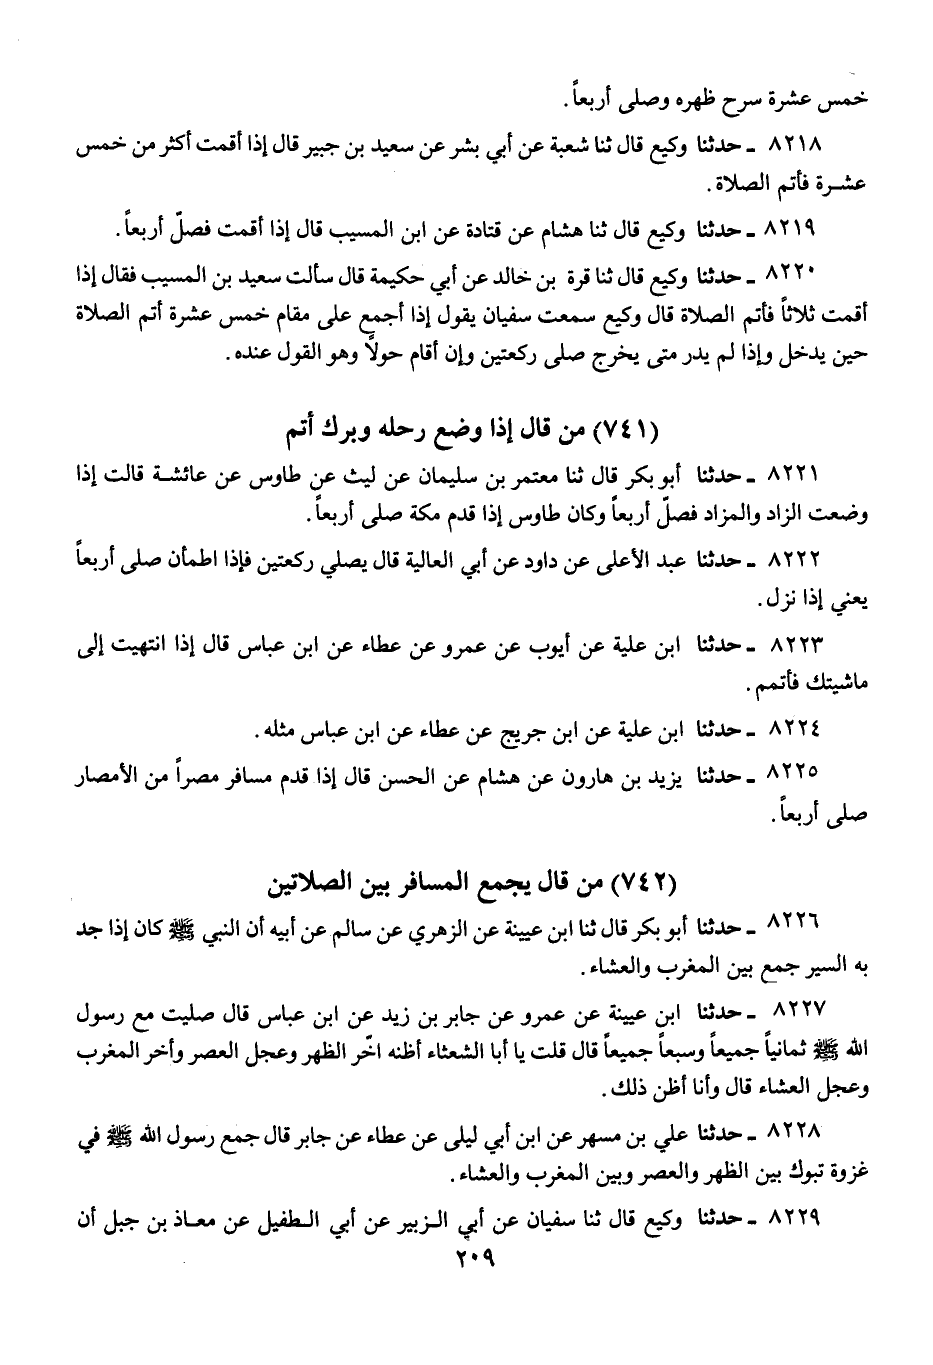 خمس عشرة سرح ظهره وصلى أربعاً.
٨٢١٨ ـ حدثنا وكيع قال ثنا شعبة عن أبي بشر عن سعيد بن جبير قال إذا أقمت أكثر من خمس
عشرة فأتم الصلاة.
٨٢١٩ ـ حدثنا وكيع قال ثنا هشام عن قتادة عن ابن المسيب قال إذا أقمت فصلّ أربعاً.
٨٢٢٠ ـ حدثنا وكيع قال ثنا قرة بن خالد عن أبي حكيمة قال سألت سعيد بن المسيب فقال إذا
أقمت ثلاثاً فأتم الصلاة قال وكيع سمعت سفيان يقول إذا أجمع على مقام خمس عشرة أتم الصلاة
حين يدخل وإذا لم يدر متى يخرج صلى ركعتين وإن أقام حولاً وهو القول عنده.
(٧٤١) من قال إذا وضع رحله وبرك أتم
٨٢٢١ ـ حدثنا أبو بكر قال ثنا معتمر بن سليمان عن ليث عن طاوس عن عائشة قالت إذا
وضعت الزاد والمزاد فصلّ أربعاً وكان طاوس إذا قدم مكة صلى أربعاً.
٨٢٢٢ ـ حدثنا عبد الأعلى عن داود عن أبي العالية قال يصلي ركعتين فإذا اطمأن صلى أربعاً
يعني إذا نزل.
٨٢٢٣ ـ حدثنا ابن علية عن أيوب عن عمرو عن عطاء عن ابن عباس قال إذا انتهيت إلى
ماشيتك فأتمم.
٨٢٢٤ ـ حدثنا ابن علية عن ابن جريج عن عطاء عن ابن عباس مثله.
٨٢٢٥ ـ حدثنا يزيد بن هارون عن هشام عن الحسن قال إذا قدم مسافر مصراً من الأمصار
صلى أربعاً.
(٧٤٢) من قال يجمع المسافر بين الصلاتين
٨٢٢٦ ـ حدثنا أبو بكر قال ثنا ابن عيينة عن الزهري عن سالم عن أبيه أن النبي ﷺ كان إذا جد
به السير جمع بين المغرب والعشاء.
٨٢٢٧ ـ حدثنا ابن عيينة عن عمرو عن جابر بن زيد عن ابن عباس قال صليت مع رسول
الله ﷺ ثمانياً جميعاً وسبعاً جميعاً قال قلت يا أبا الشعثاء أظنه اخّر الظهر وعجل العصر وأخر المغرب
وعجل العشاء قال وأنا أظن ذلك.
٨٢٢٨ ـ حدثنا علي بن مسهر عن ابن أبي ليلى عن عطاء عن جابر قال جمع رسول الله ﷺ في
غزوة تبوك بين الظهر والعصر وبين المغرب والعشاء.
٨٢٢٩ ـ حدثنا وكيع قال ثنا سفيان عن أبي الزبير عن أبي الطفيل عن معاذ بن جبل أن
٢٠٩